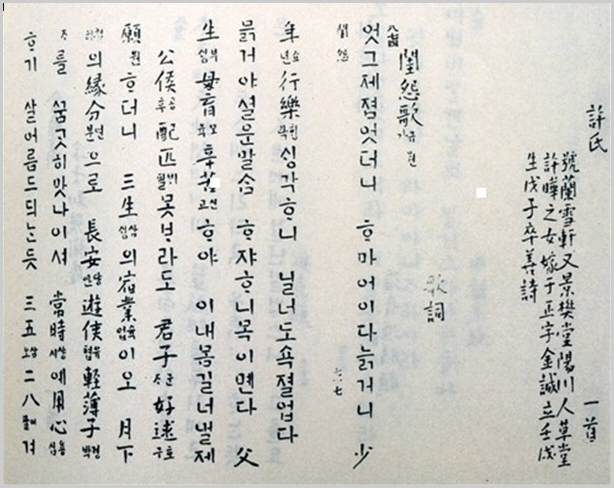 許氏 一首
號蘭雪軒又景樊堂陽川人草堂
許曄之女嫁于正字金誠立壬戌
生戊子卒善詩
歌詞
閨怨歌
엇그제졈엇더니 ᄒᆞ마어이다늙거니 少
年行樂싱각ᄒᆞ니 닐너도쇽졀업다
늙거야셜운말ᄉᆞᆷ ᄒᆞ쟈ᄒᆞ니목이멘다 父
生母育辛苦ᄒᆞ야 이내몸길너낼제
公侯配匹못ᄇᆞ라도 君子好逑
願원ᄒᆞ더니 三生의宿業이오 月下
의緣分으로 長安遊俠輕薄子
를ᄭᅮᆷᄀᆞᆺ히맛나이셔 常時예用心
ᄒᆞ기 살어름드듸ᄂᆞᆫ듯 三五二八겨